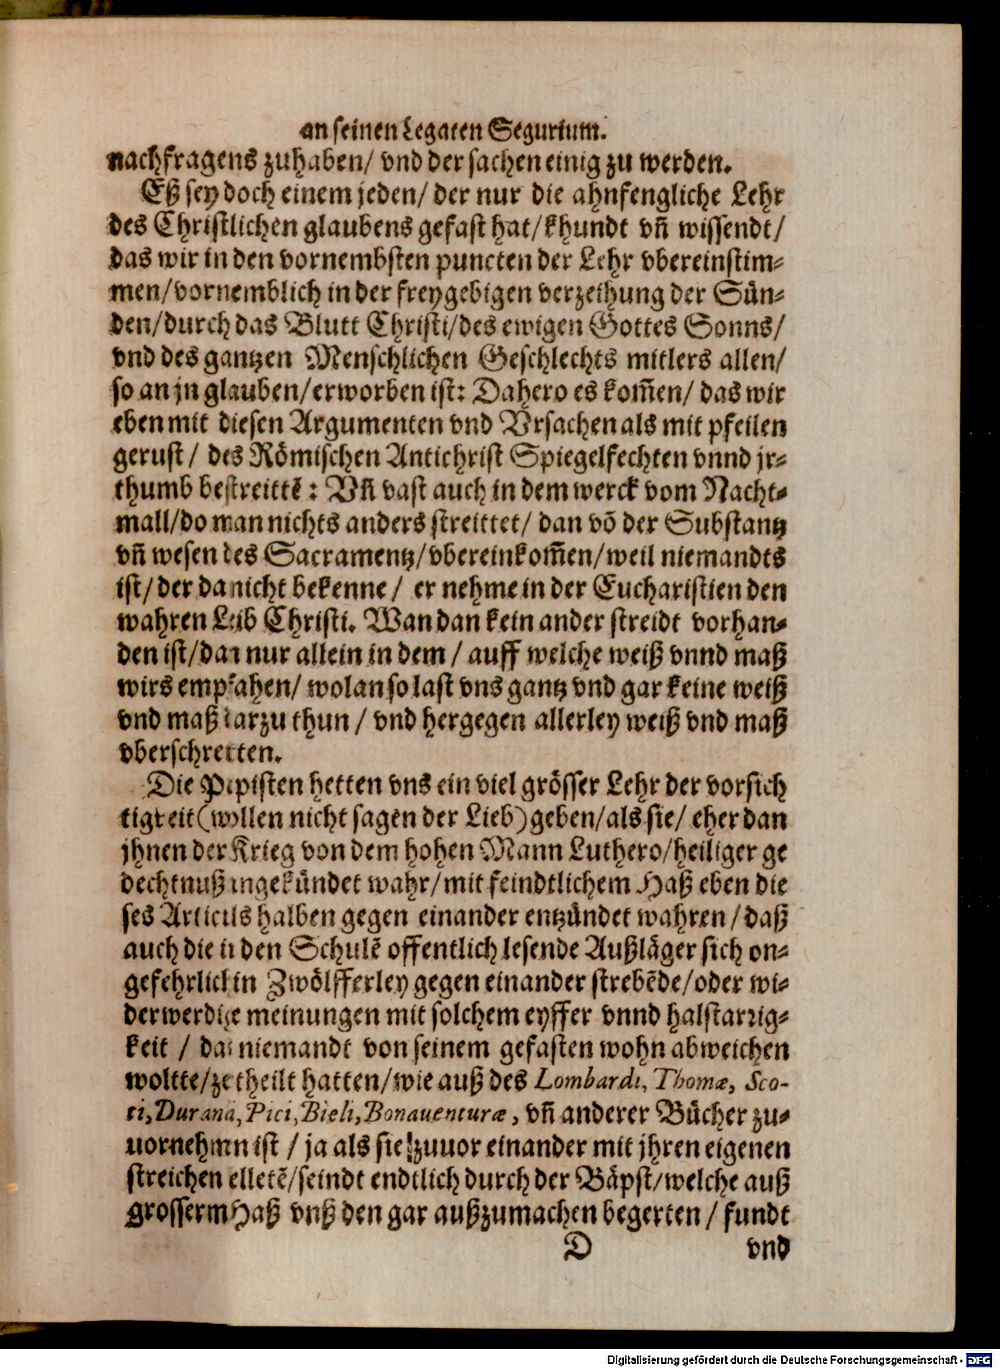 an seinen Legaten Segurium.
nachfragens zuhaben/ vnd der sachen einig zu werden.
Eß sey doch einem jeden/ der nur die ahnfengliche Lehr
des Christlichen glaubens gefast hat/khundt vñ wissendt/
das wir in den vornembsten puncten der Lehr vbereinstim-
men/vornemblich in der freygebigen verzeihung der Sün-
den/durch das Blutt Christi/des ewigen Gottes Sonns/
vnd des gantzen Menschlichen Geschlechts mitlers allen/
so an jn glauben/erworben ist: Dahero es kom̃en/ das wir
eben mit diesen Argumenten vnd Vrsachen als mit pfeilen
gerust/ des Römischen Antichrist Spiegelfechten vnnd jr-
thumb bestreittẽ: Vñ vast auch in dem werck vom Nacht-
mall/do man nichts anders streittet/ dan võ der Substantz
vñ wesen des Sacramentz/vbereinkom̃en/weil niemandts
ist/der da nicht bekenne/ er nehme in der Eucharistien den
wahren Leib Christi. Wan dan kein ander streidt vorhan-
den ist/dan nur allein in dem/ auff welche weiß vnnd maß
wirs empfahen/ wolan so last vns gantz vnd gar keine weiß
vnd maß darzu thun/ vnd hergegen allerley weiß vnd maß
vberschretten.
Die Papisten hetten vns ein viel grösser Lehr der vorsich
tigkeit(wollen nicht sagen der Lieb)geben/als sie/ eher dan
jhnen der Krieg von dem hohen Mann Luthero/heiliger ge
dechtnuß angekündet wahr/mit feindtlichem Haß eben die
ses Articuls halben gegen einander entzündet wahren/daß
auch die in den Schulẽ offentlich lesende Außläger sich on-
gefehrlich in Zwölfferley gegen einander strebẽde/oder wi-
derwerdige meinungen mit solchem eyffer vnnd halstarrig-
keit / das niemandt von seinem gefasten wohn abweichen
woltte/zertheilt hatten/wie auß des Lombardi, Thomæ, Sco-
ti, Durandi, Pici, Bieli, Bonauenturæ, vñ anderer Bücher zu-
uornehmen ist / ja als sie zuuor einander mit jhren eigenen
streichen elletẽ/seindt endtlich durch der Bäpst/welche auß
grosserm Haß vnß den gar außzumachen begerten/ fundt
D vnd
Digitalisierung gefördert durch die Deutsche Forschungsgemeinschaft - DFG